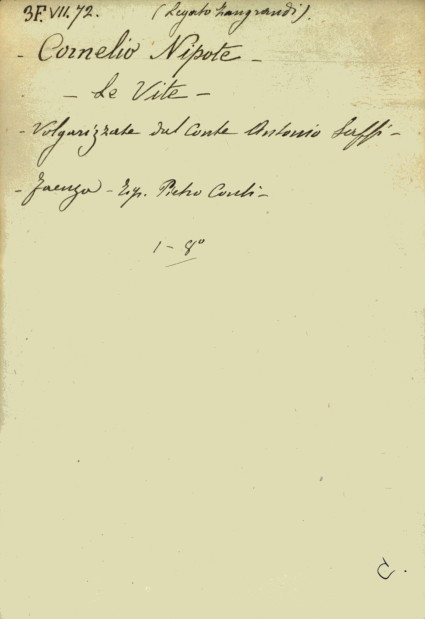 3F.VII.72. (Legato Zangrandi).
- Cornelio Nipote -
- Le Vite -
- Volgarizzate dal Conte Antonio Saffi -
- Faenza - Tip. Pietro Conti -
1 - 8°
C.